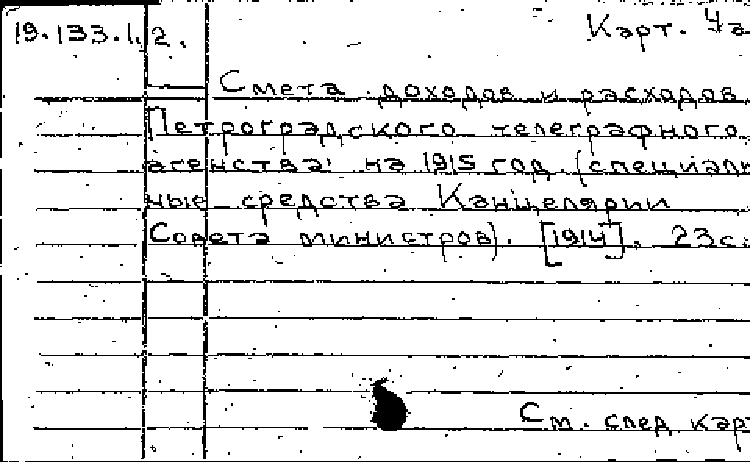 19.133.1.2. Карт. 4а
Смета доходов и расходов
Петроградского телеграфного
агенства на 1915 год (специаль
ные средства Канцелярии
Совета министров). [1914]. 23с.
См. след кар